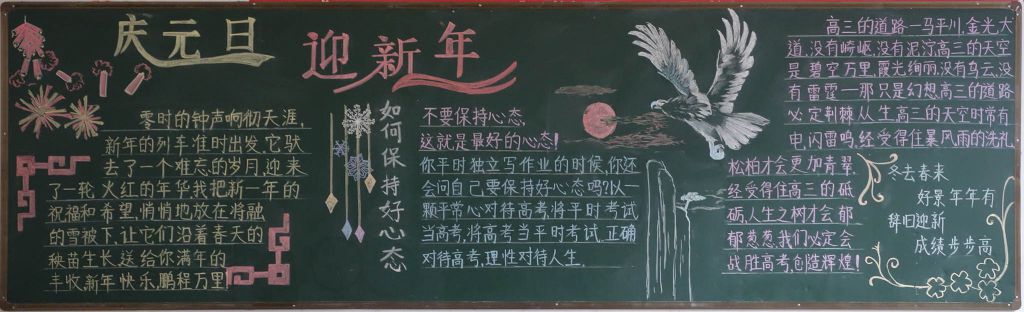 庆元旦
迎新年
零时的钟声响彻天涯,
新年的列车准时出发,它驮
去了一个难忘的岁月,迎来
了一轮火红的年华我把新一年的
祝福和希望,悄悄地放在将融
的雪被下,让它们沿着春天的
秧苗生长,送给你满年的
丰收,新年快乐,鹏程万里
如何保持好心态
不要保持心态,
这就是最好的心态!
你平时独立写作业的时候,你还
会问自己,要保持好心态吗?以一
颗平常心对待高考,将平时考试
当高考,将高考当平时考试.正确
对待高考,理性对待人生.
高三的道路一马平川,金光大
道,没有崎岖,没有泥泞高三的天空
是碧空万里,霞光绚丽,没有乌云,没
有雷霆一那只是幻想高三的道路
必定荆棘从生高三的天空时常有
电,闪雷鸣,经受得住暴风雨的洗礼,
松柏才会更加青翠.
经受得住高三的砥
砺,人生之树才会郁
郁葱葱.我们必定会
战胜高考,创造辉煌!
冬去春来
好景年年有
辞旧迎新
成绩步步高